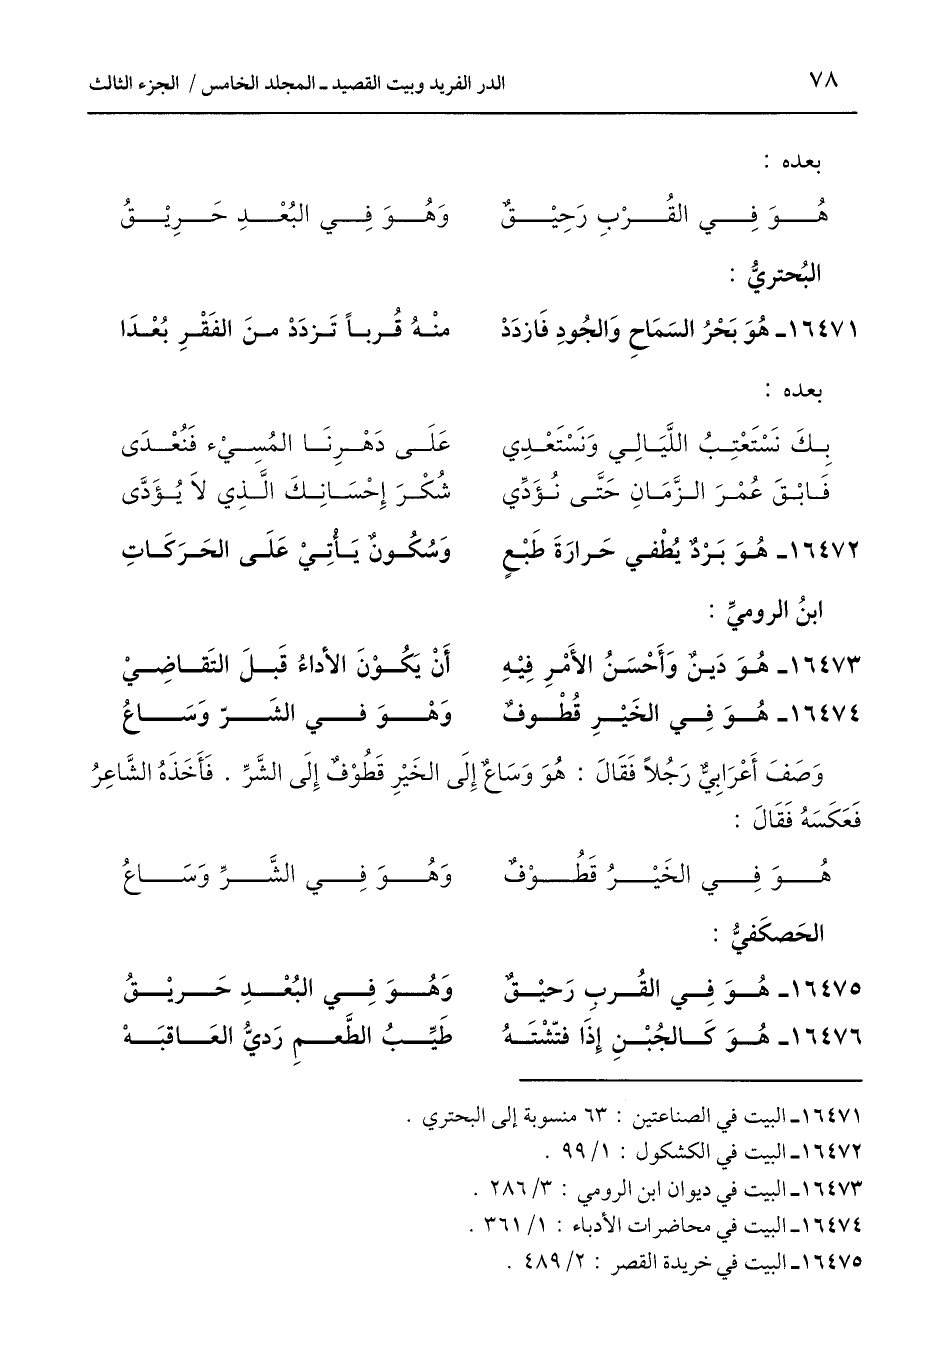 ٧٨ الدر الفريد وبيت القصيد ـ المجلد الخامس / الجزء الثالث
بعده :
هُوَ فِي القُرْبِ رَحِيْقٌ وَهُوَ فِي البُعْدِ حَرِيْقُ
البُحتريُّ :
١٦٤٧١ـ هُوَ بَحْرُ السَمَاحِ وَالجُودِ فَازدَدْ منْهُ قُرباً تَزدَدْ منَ الفَقْرِ بُعْدَا
بعده :
بِكَ نَسْتَعْتِبُ اللَّيَالِي وَنَسْتَعْدِي عَلَى دَهْرِنَا المُسِيْءِ فَنُعْدَى
فَابْقَ عُمْرَ الزَّمَانِ حَتَّى نُؤَدِّي شُكْرَ إِحْسَانِكَ الَّذِي لاَ يُؤَدَّى
١٦٤٧٢ـ هُوَ بَرْدٌ يُطْفي حَرارَةَ طَبْعٍ وَسُكُونٌ يَأْتِيْ عَلَى الحَرَكَاتِ
ابنُ الروميِّ :
١٦٤٧٣ـ هُوَ دَينٌ وَأَحْسَنُ الأَمْرِ فِيْهِ أَنْ يَكُوْنَ الأَداءُ قَبلَ التَقَاضِيْ
١٦٤٧٤ـ هُوَ فِي الخَيْرِ قُطْوفٌ وَهْوَ في الشَرّ وَسَاعُ
وَصَفَ أَعْرَابِيٌّ رَجُلاً فَقَالَ : هُوَ وَسَاعٌ إِلَى الخَيْرِ قَطُوْفٌ إِلَى الشَّرِّ . فَأَخَذَهُ الشَّاعِرُ
فَعَكَسَهُ فَقَالَ :
هُوَ فِي الخَيْرُ قَطُوْفٌ وَهُوَ فِي الشَّرِّ وَسَاعُ
الحَصكَفيُّ :
١٦٤٧٥ـ هُوَ فِي القُربِ رَحيْقٌ وَهُوَ فِي البُعْدِ حَريْقُ
١٦٤٧٦ـ هُوَ كَالجُبْنِ إِذَا فتّشْتَهُ طَيِّبُ الطَّعمِ رَديُّ العَاقبَهْ
١٦٤٧١ـ البيت في الصناعتين : ٦٣ منسوبة إلى البحتري .
١٦٤٧٢ـ البيت في الكشكول : ١/ ٩٩ .
١٦٤٧٣ـ البيت في ديوان ابن الرومي : ٣/ ٢٨٦ .
١٦٤٧٤ـ البيت في محاضرات الأدباء : ١/ ٣٦١ .
١٦٤٧٥ـ البيت في خريدة القصر : ٢/ ٤٨٩ .